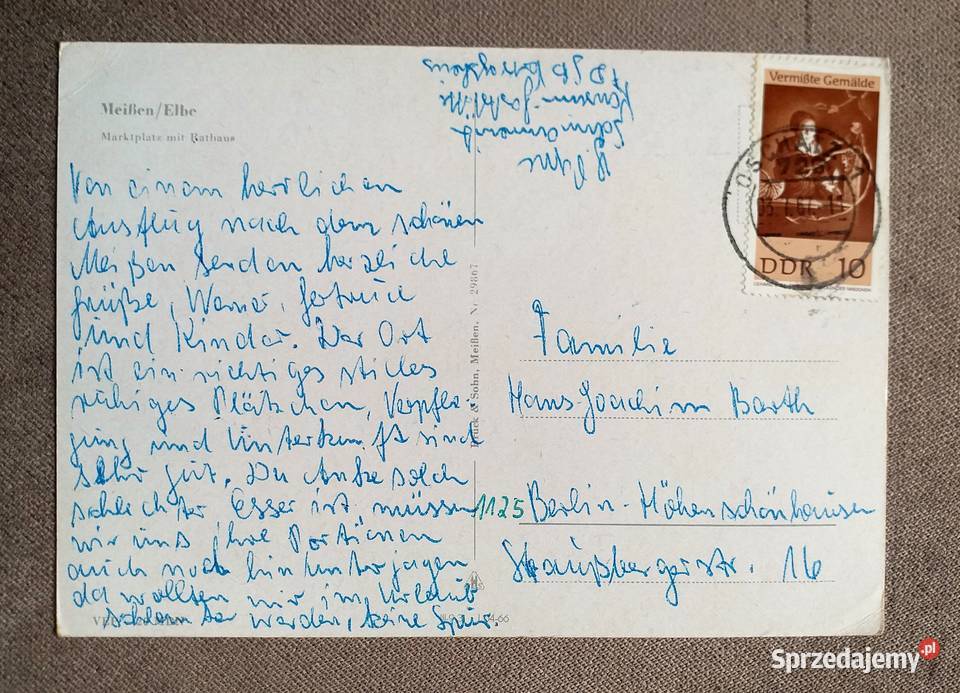 Meißen/Elbe
Marktplatz mit Rathaus
Von einem herrlichen
Ausflug nach dem schönen
Meißen senden herzliche
Grüße, Werner, Gertrud
und Kinder. Der Ort
ist ein richtiges stilles
ruhiges Plätzchen, Verpfle-
gung und Unterkunft sind
sehr gut. Da Antje solch
schlechter Esser ist müssen
wir uns ihre Portionen
auch noch hinunterjagen
da wollten wir im Urlaub
schlanker werden, keine Spur.
4-66
Druck & Sohn, Meißen, Nr. 29867
FDGB
Vermißte Gemälde
DDR 10
OSCHATZ 1
Familie
Hans Joachim Barth
1125 Berlin-Hohenschönhausen
Straußbergerstr. 16
Sprzedajemy.pl